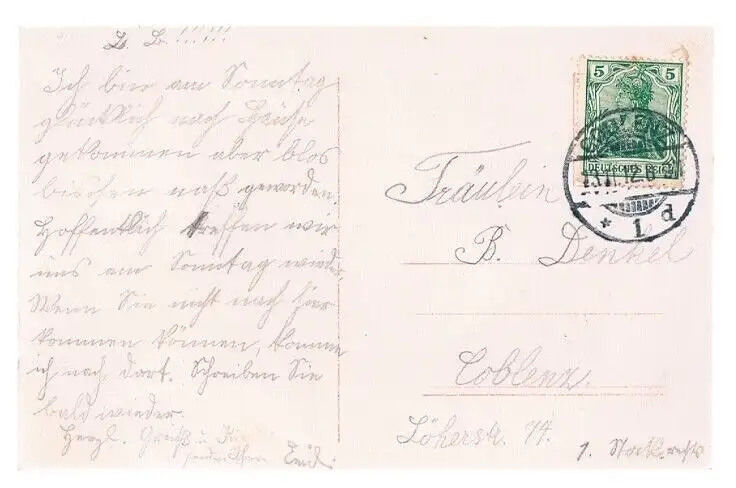 L. B.!!!!!
Ich bin am Sonntag
glücklich nach Hause
gekommen aber blos
bischen naß geworden.
Hoffentlich treffen wir
uns am Sonntag wieder.
Wenn Sie nicht nach hier
kommen können, komme
ich nach dort. Schreiben Sie
bald wieder.
Herzl. Gruß u.
5 5
DEUTSCHES REICH
COBLENZ
* 1 d
Fräulein
B. Denkel
Coblenz.
Löherstr. 74.
1. Stock rechts